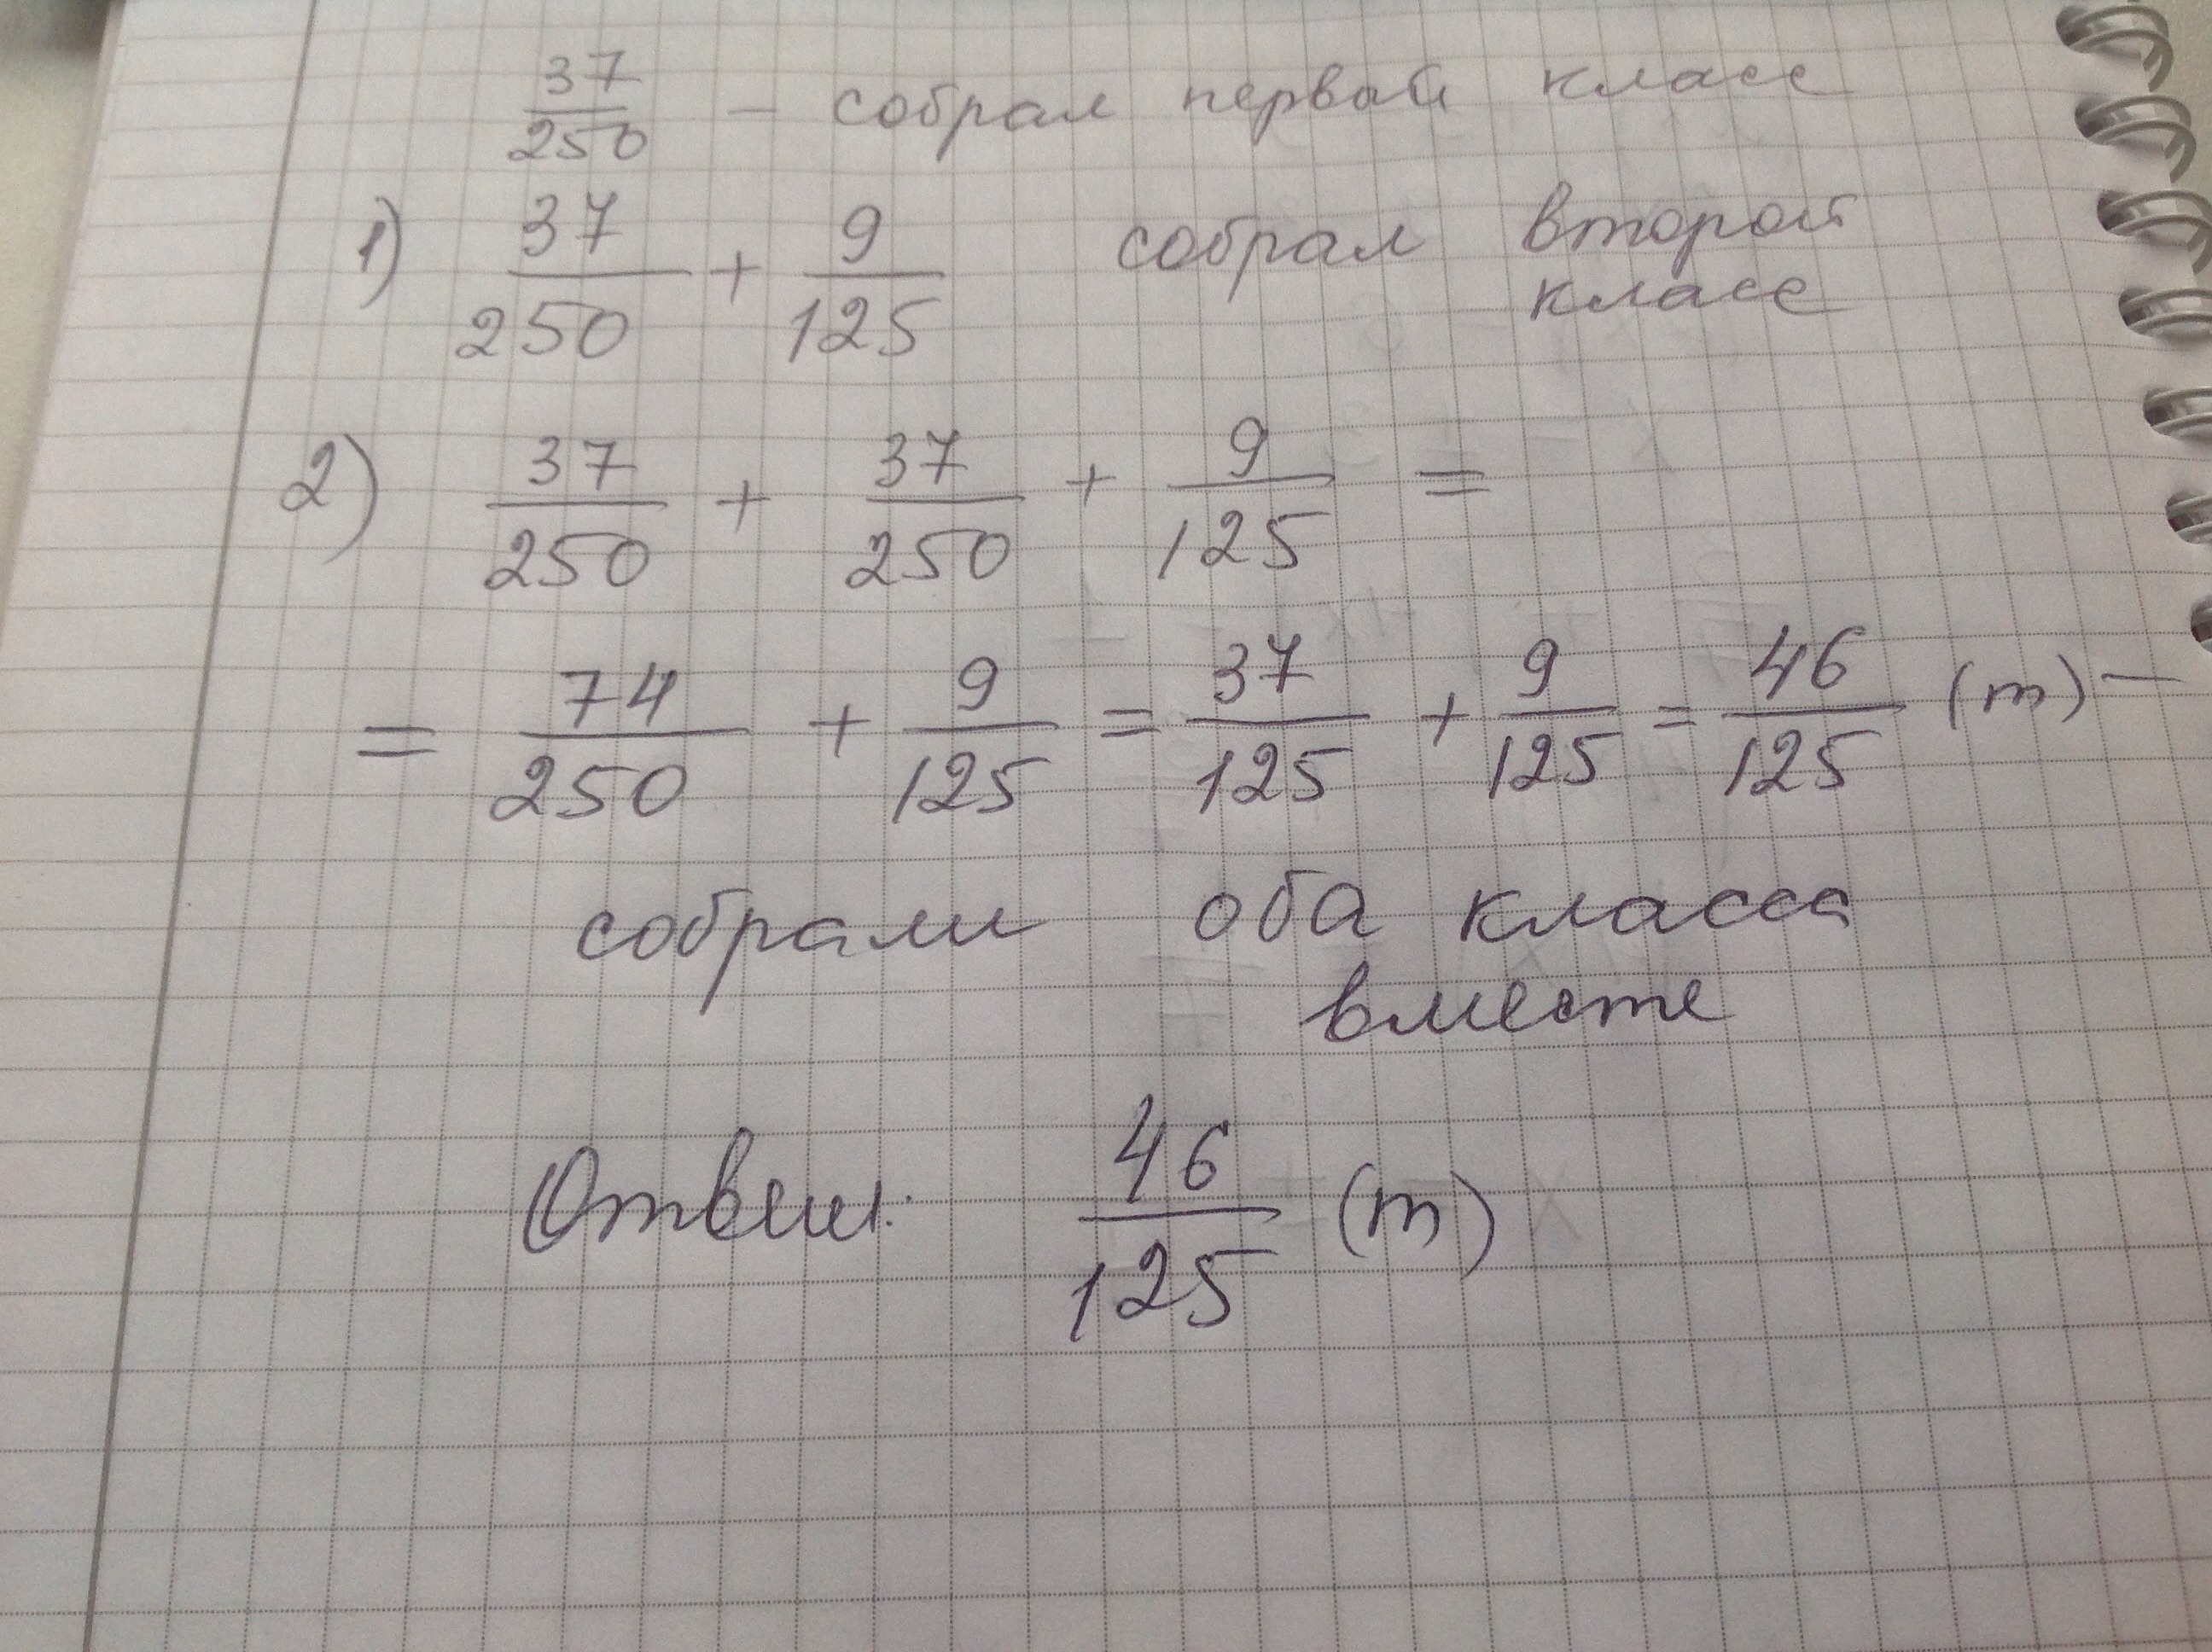 37/250 – собрал первый класс
1) 37/250 + 9/125 собрал второй
класс
2) 37/250 + 37/250 + 9/125 =
= 74/250 + 9/125 = 37/125 + 9/125 = 46/125 (т) –
собрали оба класса
вместе
Ответ: 46/125 (т)